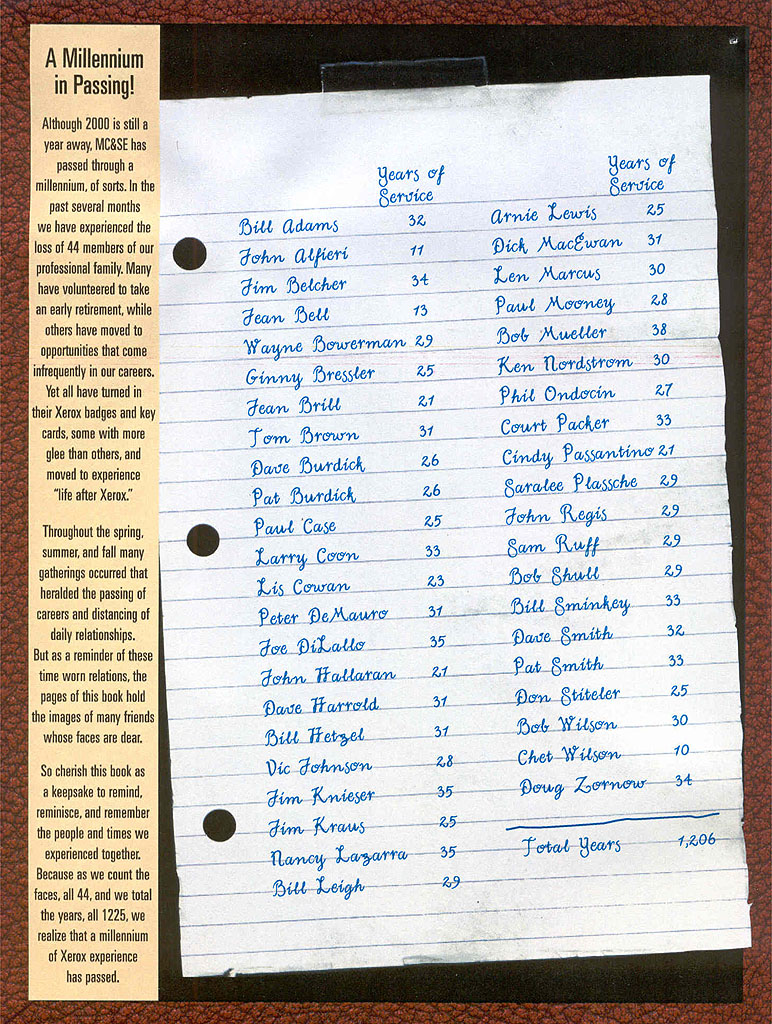 A Millennium
in Passing!
Although 2000 is still a
year away, MC&SE has
passed through a
millennium, of sorts. In the
past several months
we have experienced the
loss of 44 members of our
professional family. Many
have volunteered to take
an early retirement, while
others have moved to
opportunities that come
infrequently in our careers.
Yet all have turned in
their Xerox badges and key
cards, some with more
glee than others, and
moved to experience
"life after Xerox."
Throughout the spring,
summer, and fall many
gatherings occurred that
heralded the passing of
careers and distancing of
daily relationships.
But as a reminder of these
time worn relations, the
pages of this book hold
the images of many friends
whose faces are dear.
So cherish this book as
a keepsake to remind,
reminisce, and remember
the people and times we
experienced together.
Because as we count the
faces, all 44, and we total
the years, all 1225, we
realize that a millennium
of Xerox experience
has passed.
Years of
Service
Bill Adams 32
John Alfieri 11
Jim Belcher 34
Jean Bell 13
Wayne Bowerman 29
Ginny Bressler 25
Jean Brill 21
Tom Brown 31
Dave Burdick 26
Pat Burdick 26
Paul Case 25
Larry Coon 33
Lis Cowan 23
Peter DeMauro 31
Joe DiLallo 35
John Hallaran 21
Dave Harrold 31
Bill Hetzel 31
Vic Johnson 28
Jim Knieser 35
Jim Kraus 25
Nancy Lazarra 35
Bill Leigh 29
Years of
Service
Arnie Lewis 25
Dick MacEwan 31
Len Marcus 30
Paul Mooney 28
Bob Mueller 38
Ken Nordstrom 30
Phil Ondocin 27
Court Packer 33
Cindy Passantino 21
Saralee Plassche 29
John Regis 29
Sam Ruff 29
Bob Shull 29
Bill Sminkey 33
Dave Smith 32
Pat Smith 33
Don Stiteler 25
Bob Wilson 30
Chet Wilson 10
Doug Zornow 34
Total Years 1,206